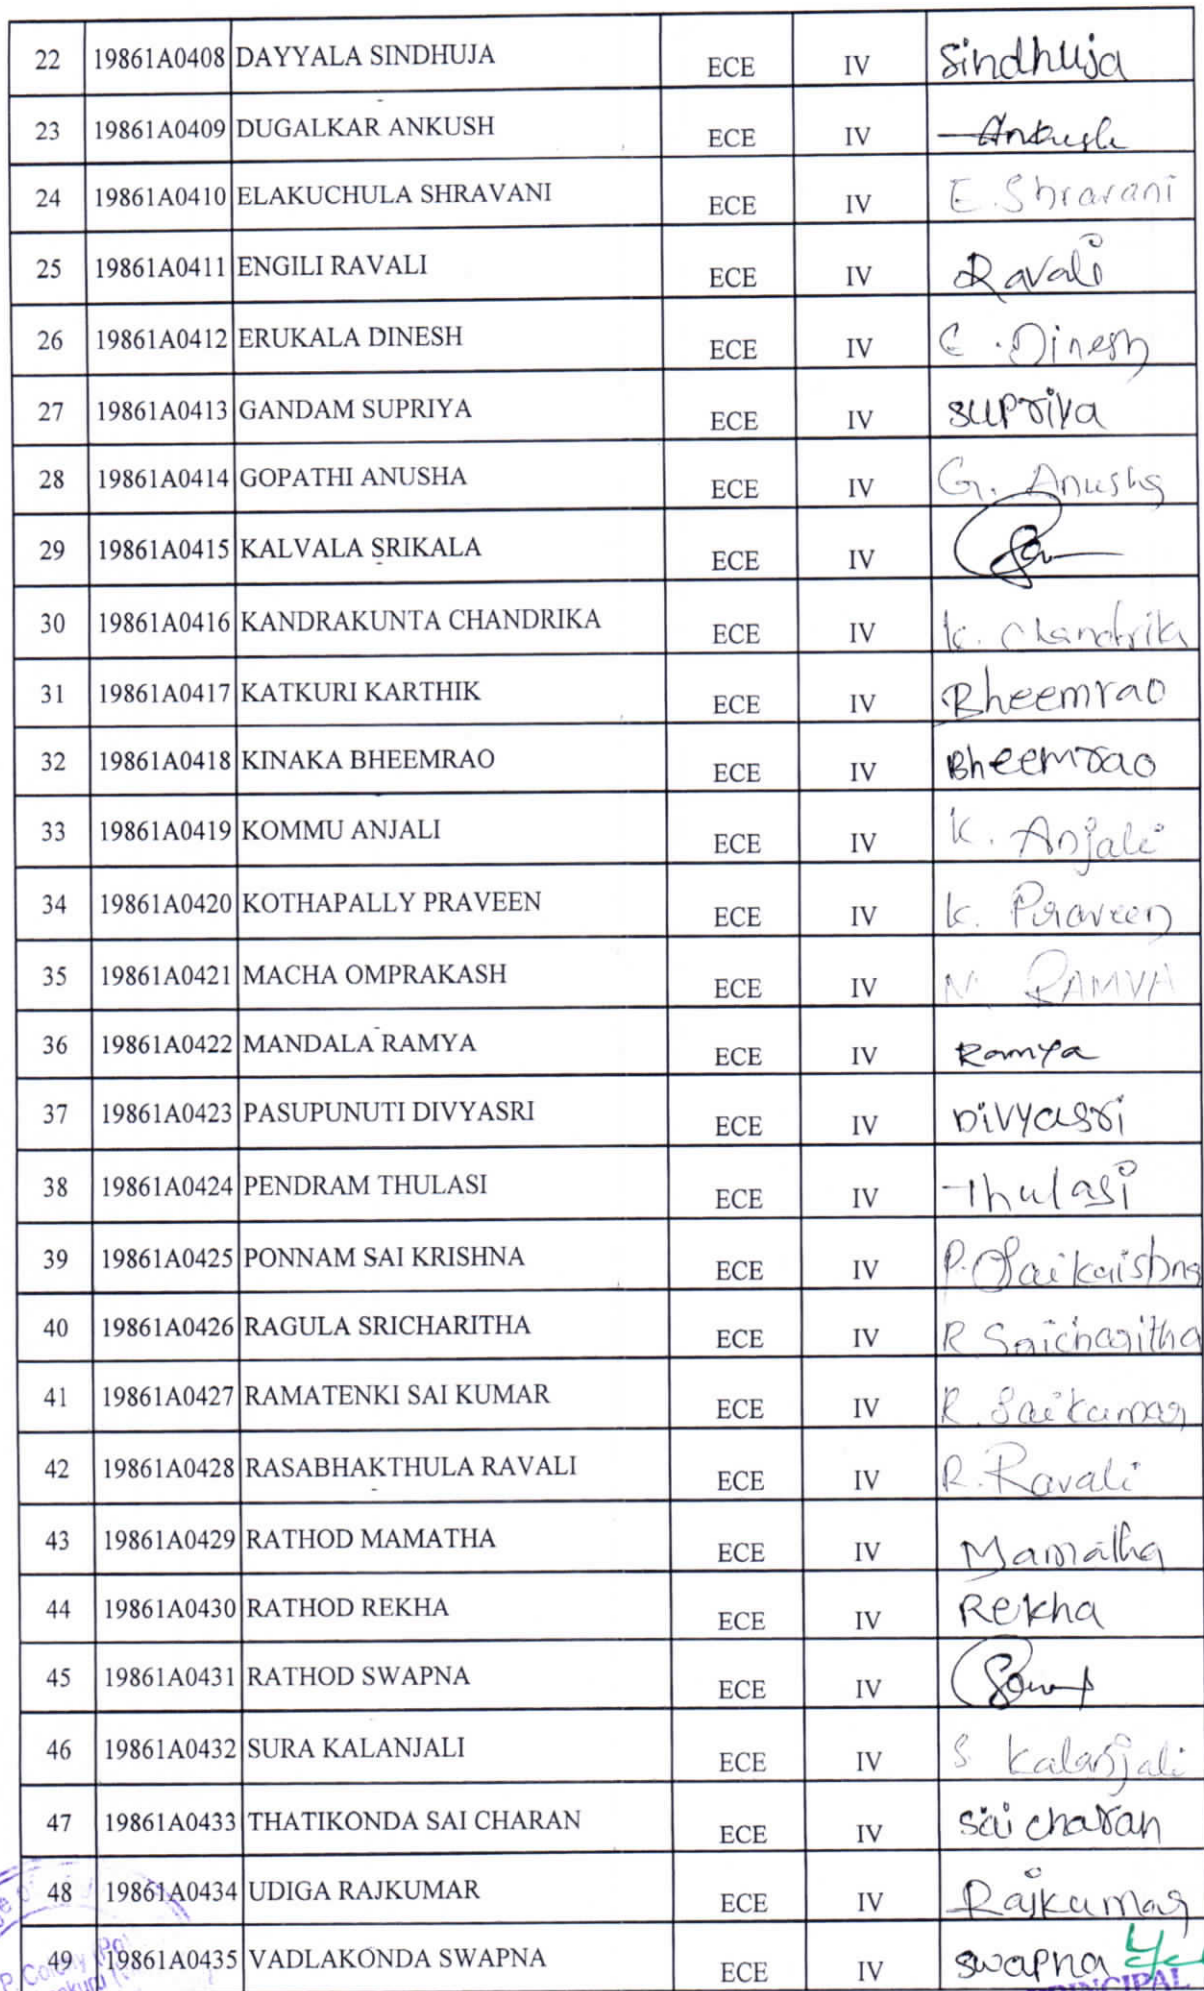 22 19861A0408 DAYYALA SINDHUJA ECE IV Sindhuja
23 19861A0409 DUGALKAR ANKUSH ECE IV Ankush
24 19861A0410 ELAKUCHULA SHRAVANI ECE IV E. Shravani
25 19861A0411 ENGILI RAVALI ECE IV Ravali
26 19861A0412 ERUKALA DINESH ECE IV E. Dinesh
27 19861A0413 GANDAM SUPRIYA ECE IV supriya
28 19861A0414 GOPATHI ANUSHA ECE IV G. Anusha
29 19861A0415 KALVALA SRIKALA ECE IV
30 19861A0416 KANDRAKUNTA CHANDRIKA ECE IV K. Chandrika
31 19861A0417 KATKURI KARTHIK ECE IV Bheemrao
32 19861A0418 KINAKA BHEEMRAO ECE IV Bheemrao
33 19861A0419 KOMMU ANJALI ECE IV K. Anjali
34 19861A0420 KOTHAPALLY PRAVEEN ECE IV K. Praveen
35 19861A0421 MACHA OMPRAKASH ECE IV RAMYA
36 19861A0422 MANDALA RAMYA ECE IV Ramya
37 19861A0423 PASUPUNUTI DIVYASRI ECE IV Divyasri
38 19861A0424 PENDRAM THULASI ECE IV Thulasi
39 19861A0425 PONNAM SAI KRISHNA ECE IV P. Saikrishna
40 19861A0426 RAGULA SRICHARITHA ECE IV R Sricharitha
41 19861A0427 RAMATENKI SAI KUMAR ECE IV R. Saikumar
42 19861A0428 RASABHAKTHULA RAVALI ECE IV R. Ravali
43 19861A0429 RATHOD MAMATHA ECE IV Mamatha
44 19861A0430 RATHOD REKHA ECE IV Rekha
45 19861A0431 RATHOD SWAPNA ECE IV
46 19861A0432 SURA KALANJALI ECE IV S Kalanjali
47 19861A0433 THATIKONDA SAI CHARAN ECE IV Sai charan
48 19861A0434 UDIGA RAJKUMAR ECE IV Rajkumar
49 19861A0435 VADLAKONDA SWAPNA ECE IV swapna
PRINCIPAL